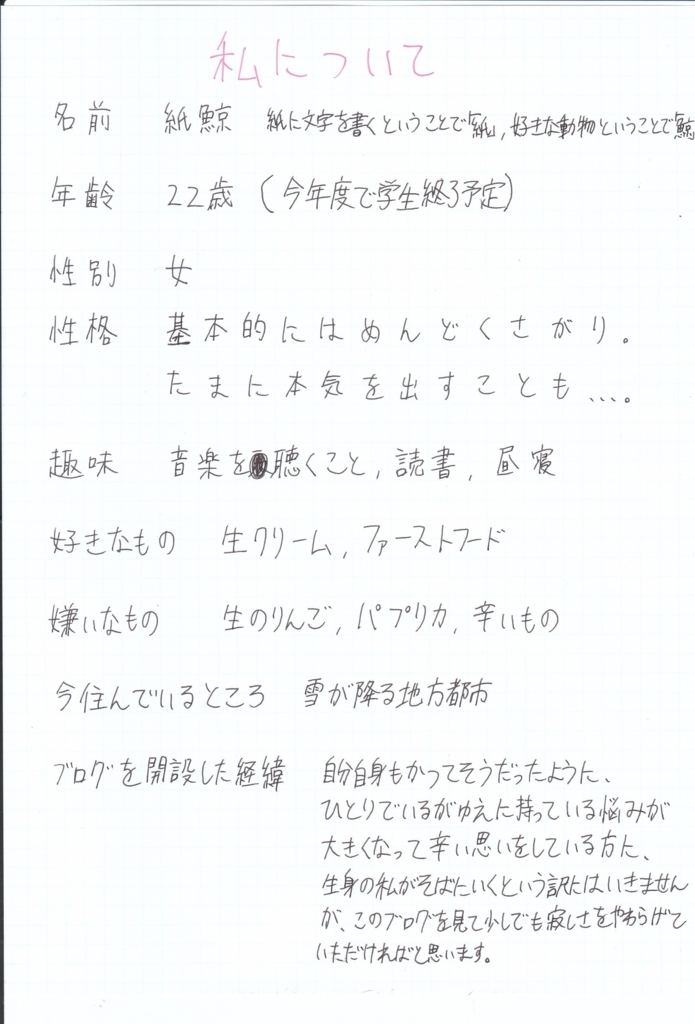 私について
名前 紙鯨 紙に文字を書くということで「紙」,好きな動物ということで「鯨
年齢 22歳 (今年度で学生終了予定)
性別 女
性格 基本的にはめんどくさがり。
たまに本気を出すことも....。
趣味 音楽を聴くこと,読書,昼寝
好きなもの 生クリーム,ファーストフード
嫌いなもの 生のりんご,パプリカ,辛いもの
今住んでいるところ 雪が降る地方都市
ブログを開設した経緯 自分自身もかつてそうだったように、
ひとりでいるがゆえに持っている悩みが
大きくなって辛い思いをしている方に、
生身の私がそばにいくという訳にはいきません
が、このブログを見て少しでも寂しさをやわらげて
いただければと思います。